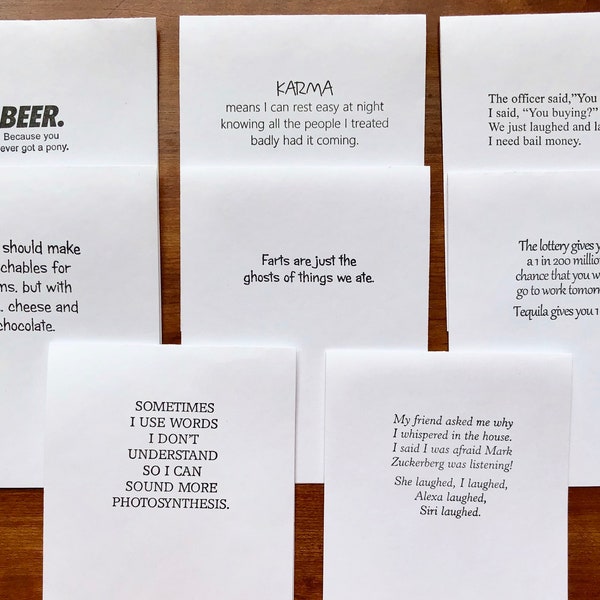 BEER.
Because you
ever got a pony.
KARMA
means I can rest easy at night
knowing all the people I treated
badly had it coming.
The officer said,"You
I said, “You buying?”
We just laughed and la
I need bail money.
should make
chables for
ms, but with
. cheese and
chocolate.
Farts are just the
ghosts of things we ate.
The lottery gives y
a 1 in 200 millio
chance that you w
go to work tomor
Tequila gives you 1
SOMETIMES
I USE WORDS
I DON'T
UNDERSTAND
SO I CAN
SOUND MORE
PHOTOSYNTHESIS.
My friend asked me why
I whispered in the house.
I said I was afraid Mark
Zuckerberg was listening!
She laughed, I laughed,
Alexa laughed,
Siri laughed.